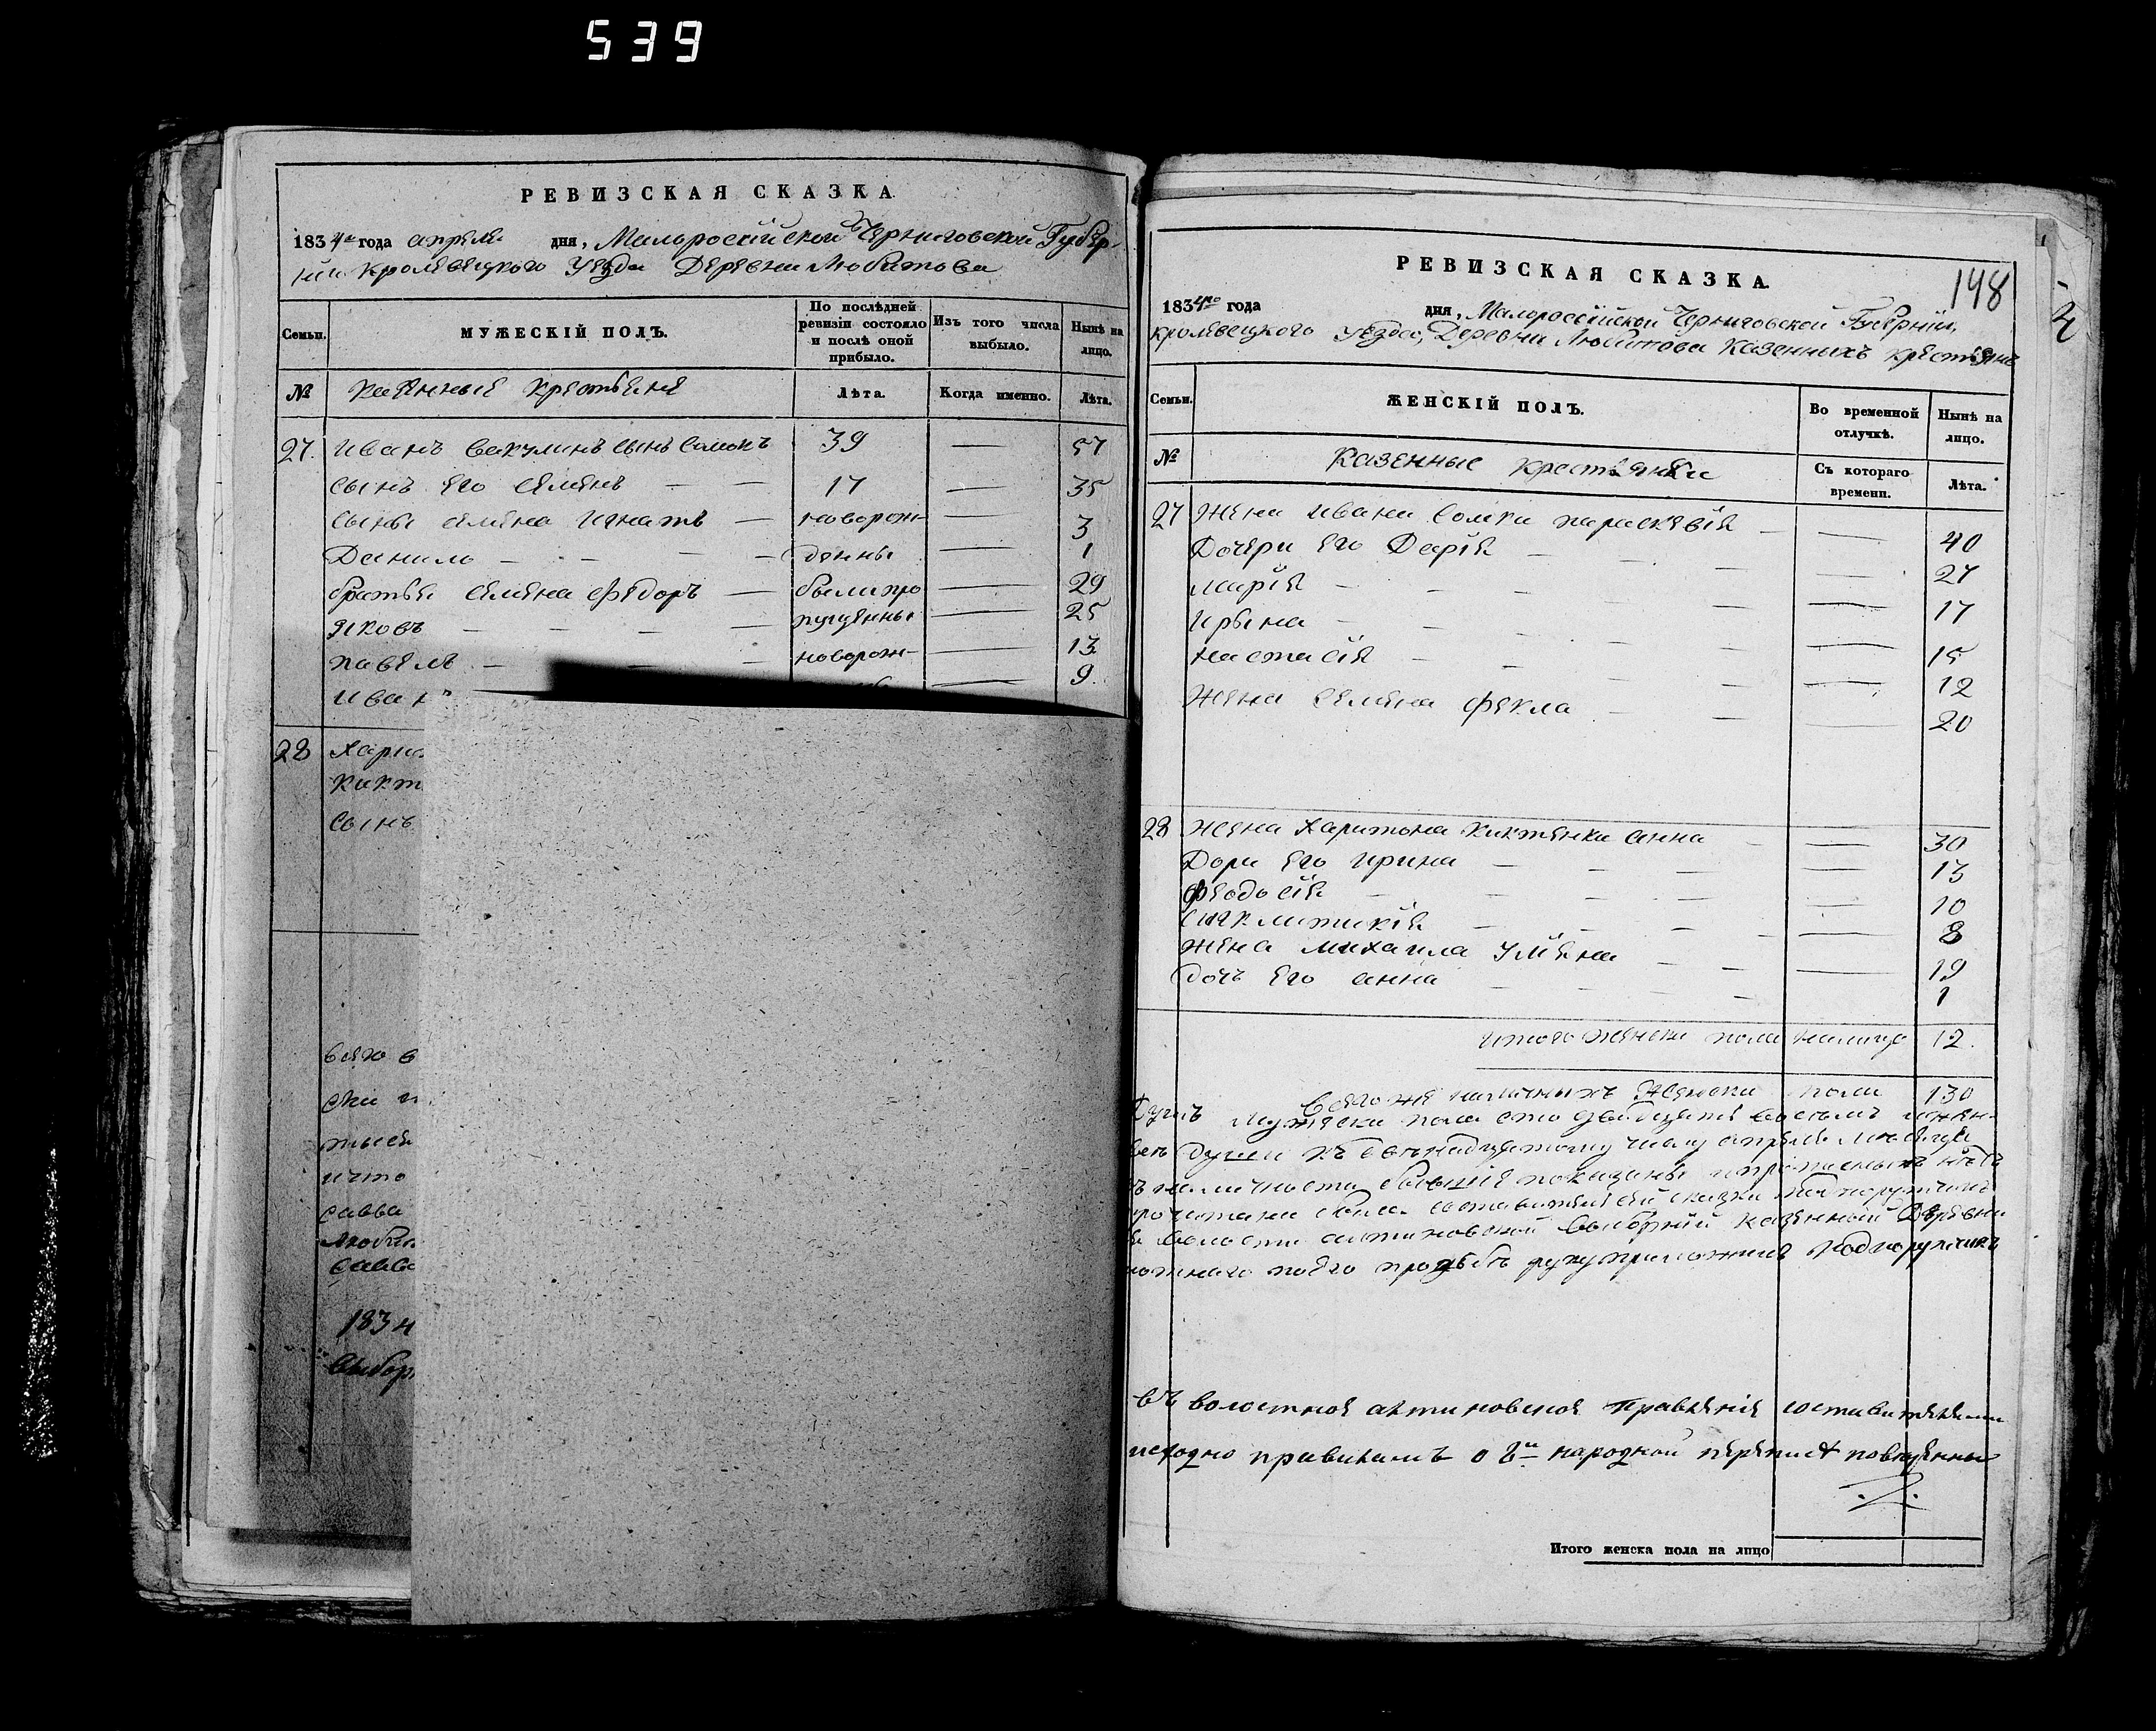 539
РЕВИЗСКАЯ СКАЗКА
1834го года апреля дня, Малоросийской Черниговской Губер-
нии Кролевецкого Уезда Деревни Любитова
Семьи.
МУЖЕСКІЙ ПОЛЪ.
По послѣдней ревизіи состояло и послѣ оной прибыло.
Изъ того числа выбыло.
Нынѣ на лицо.
№
Казенные крестьяне
Лѣта.
Когда именно.
Лѣта.
27. Иванъ Вакулинъ сынъ Сомокъ 39 — 57
Сынъ его Семенъ — — 17 — 35
Сыны Семена Игнатъ — новорож- — 3
Данило — — — — денны — 1
братья Семена Федоръ — были про — 29
Яковъ — — — — пущенны — 25
Павелъ — — — новорож- — 13
Иван — 9.
28 Хари
Кикт
Сынъ
всего в
ски п
тыся
что
Савва
Любит
Савва
1834
Выбор
РЕВИЗСКАЯ СКАЗКА.
148
1834го года дня, Малоросейской Черниговской Губерніи,
Кролевецкого Уезда, Деревни Любитова Казенныхъ крестьянъ
Семьи.
ЖЕНСКІЙ ПОЛЪ.
Во временной отлучкѣ.
Нынѣ на лицо.
№
Казенные крестьянки
Съ котораго времени.
Лѣта.
27 Жена Ивана Сомка Параскевія — — 40
Дочери его Дарія — — — — 27
Марія — — — — — 17
Ирына — — — — — 15
Настасія — — — — — 12
Жена Семена Фекла — — — 20
28 Жена Харитона Киктенка Анна — — 30
Дочи его Ирина — — — — 13
Феодосія — — — — — 10
Сикмитикія — — — — 8
Жена Михаила Умена — — — 19
дочъ его Анна — — — — 1
итого женска пола налицо 12.
Всего же наличныхъ Женска пола 130
Душъ мужеска пола сто двадцять восьмъ и жен-
душъ къ числу апреля месяца
въ наличности показаны и прописныхъ нетъ
прочитана была составителей сей сказки подпоручикъ
волости алтиновской Выборній казенный Деревни
ложнаго поего прозьбѣ руку приложилъ Подпоручикъ
въ волостное алтиновское Правленіе составителями
исходно правиламъ о 8й народной переписѣ
Итого женска пола на лицо